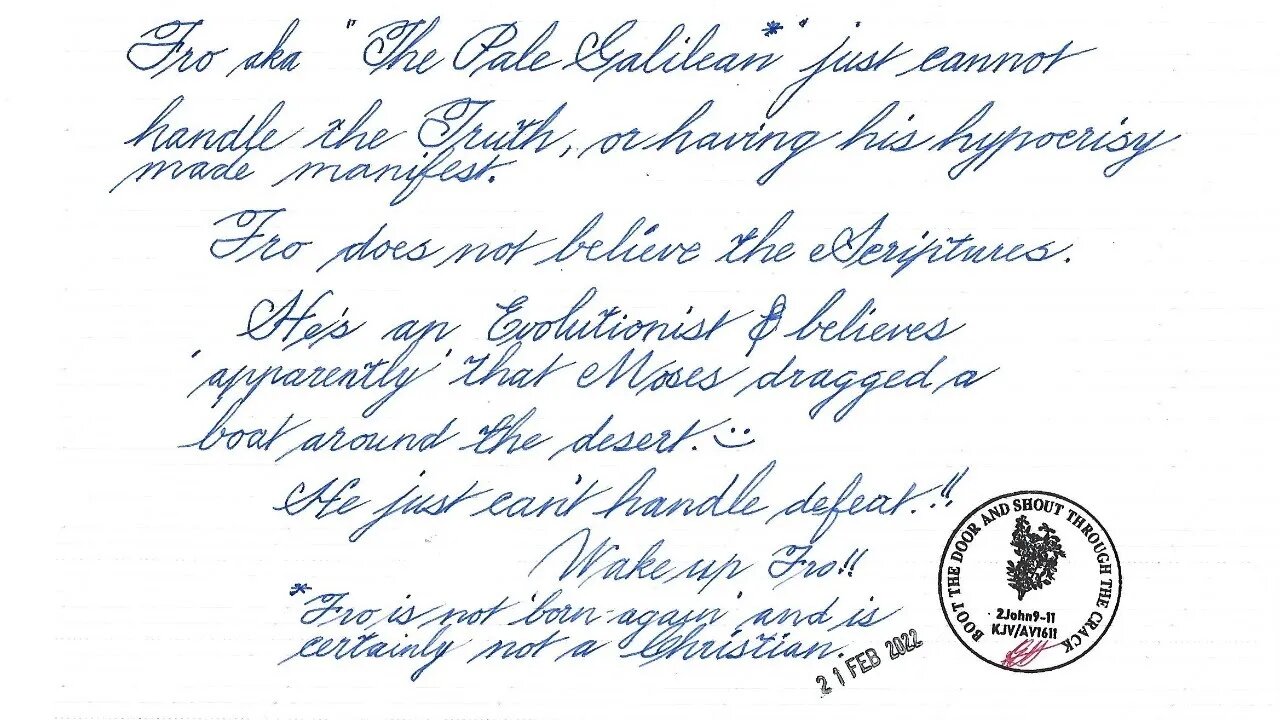 Fro aka "The Pale Galilean*" just cannot
handle the Truth, or having his hypocrisy
made manifest.
Fro does not believe the Scriptures.
He's an Evolutionist & believes
'apparently' that Moses dragged a
boat around the desert. :)
He just can't handle defeat.!!
Wake up Fro!!
*Fro is not 'born-again' and is
certainly not a Christian.
21 FEB 2022
BOOT THE DOOR AND SHOUT THROUGH THE CRACK
2John9-11
KJV/AV1611